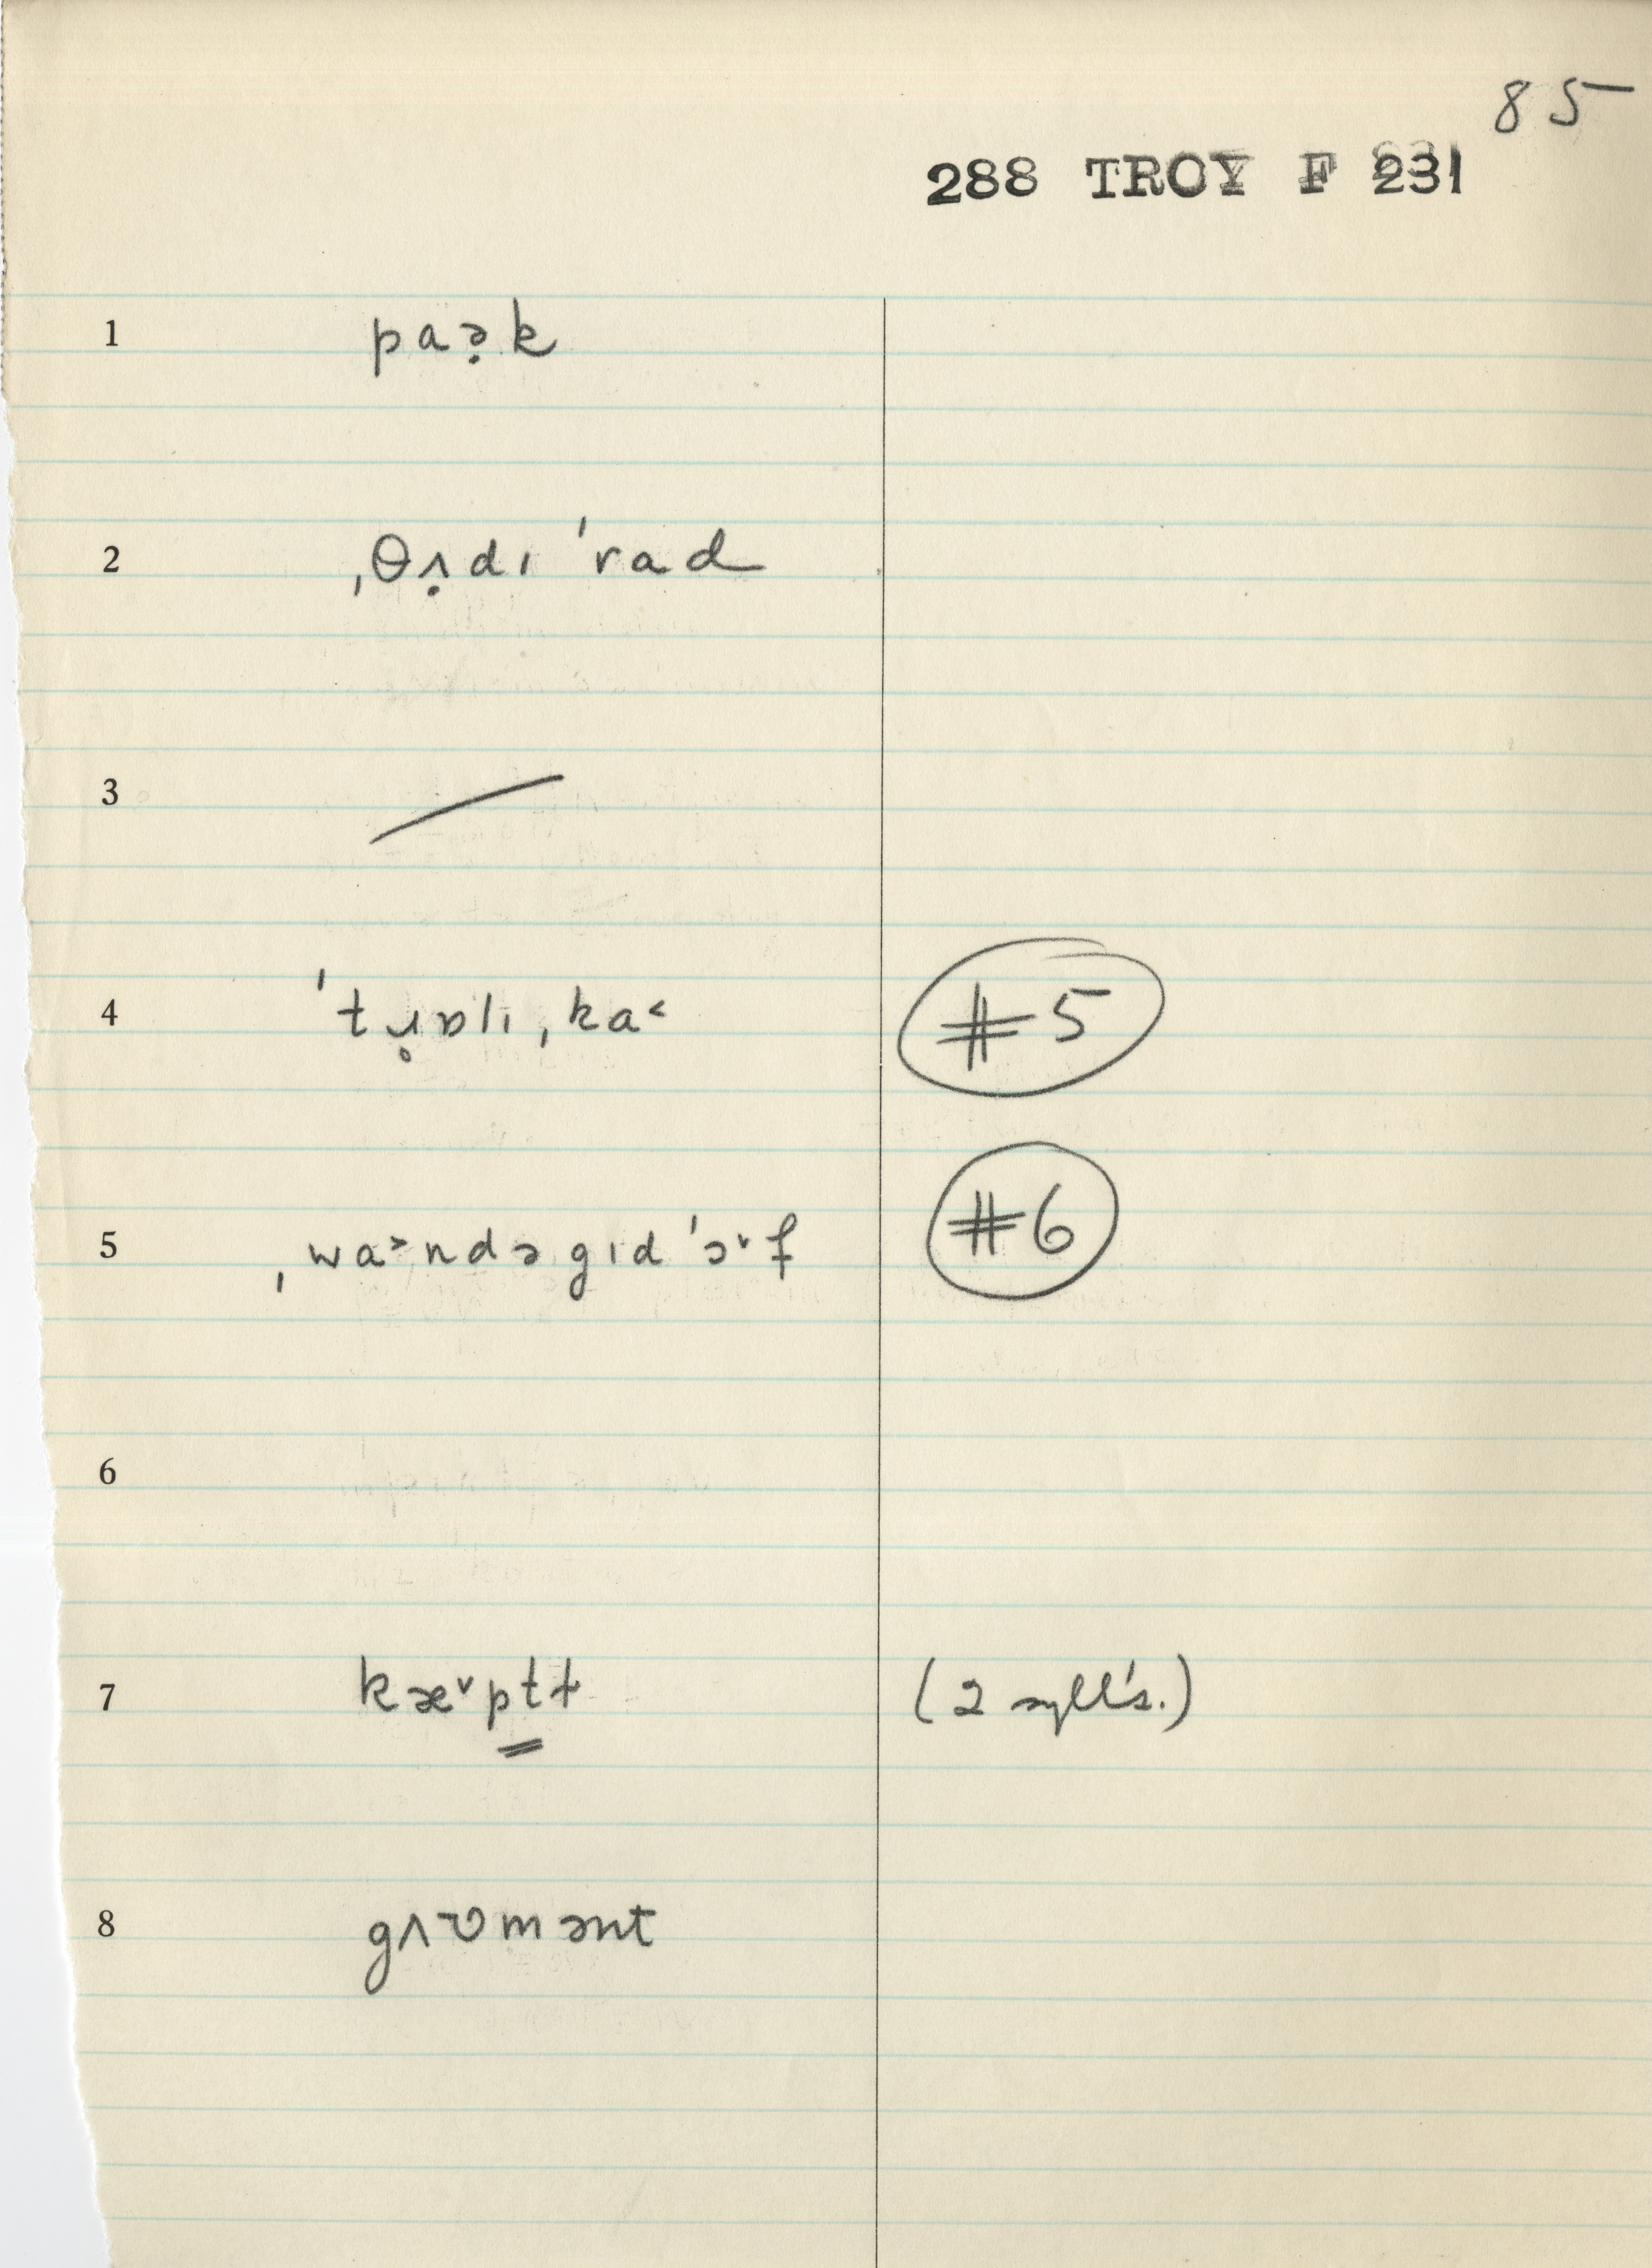 85
288 TROY F 231
1 paə̣k
2 ˌθʌ̣dɪ ˈrad
3 /
4 ˈtɹ̥ɒlɪˌka˂
5 ˌwa˃ndə gɪd ˈɔ˅f
#5
#6
6
7 kæ˅p͇t͇t (2 syll's.)
8 gʌʊmənt